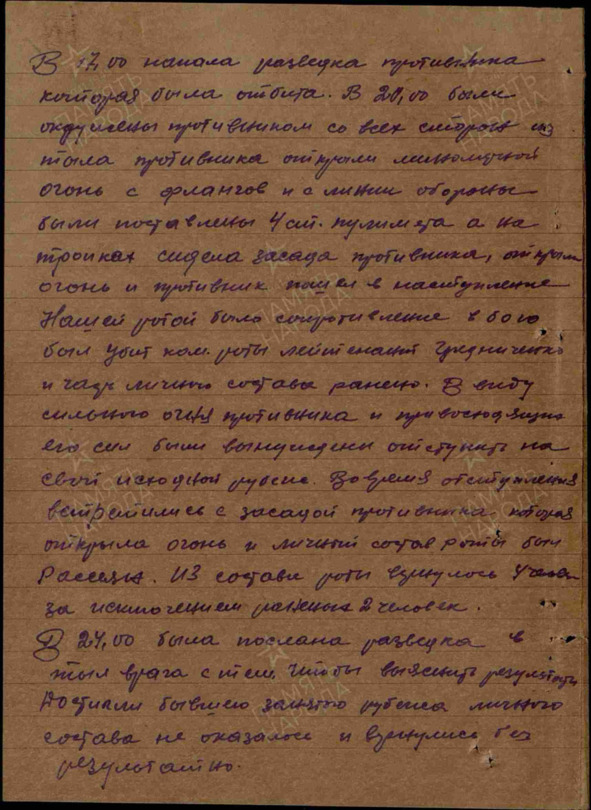 В 17,00 начала разведка противника
которая была отбита. В 20,00 были
окружены противником со всех сторон из
тыла противника открыли минометной
огонь с флангов и с линии обороны
были поставлены 4 ст. пулимета а на
тропках сидела засада противника, открыли
огонь и противник пошел в наступление
Нашей ротой было сопротивление в бою
был убит ком. роты лейтенант Гредниченко
и часть личного состава ранено. В виду
сильного огня противника и превосходящих
его сил были вынуждены отступить на
свой исходной рубеж. Вовремя отступления
встретились с засадой противника, которая
открыла огонь и личный состав роты был
Рассеян. Из состава роты вернулось 4 челов
за исключением раненых 2 человек.
В 24,00 была послана разведка в
тыл врага с тем. Чтобы выяснить результаты
Достигли бывшего занято рубежа личного
состава не оказалось и вернулись без
результатно.
ПАМЯТЬ НАРОДА